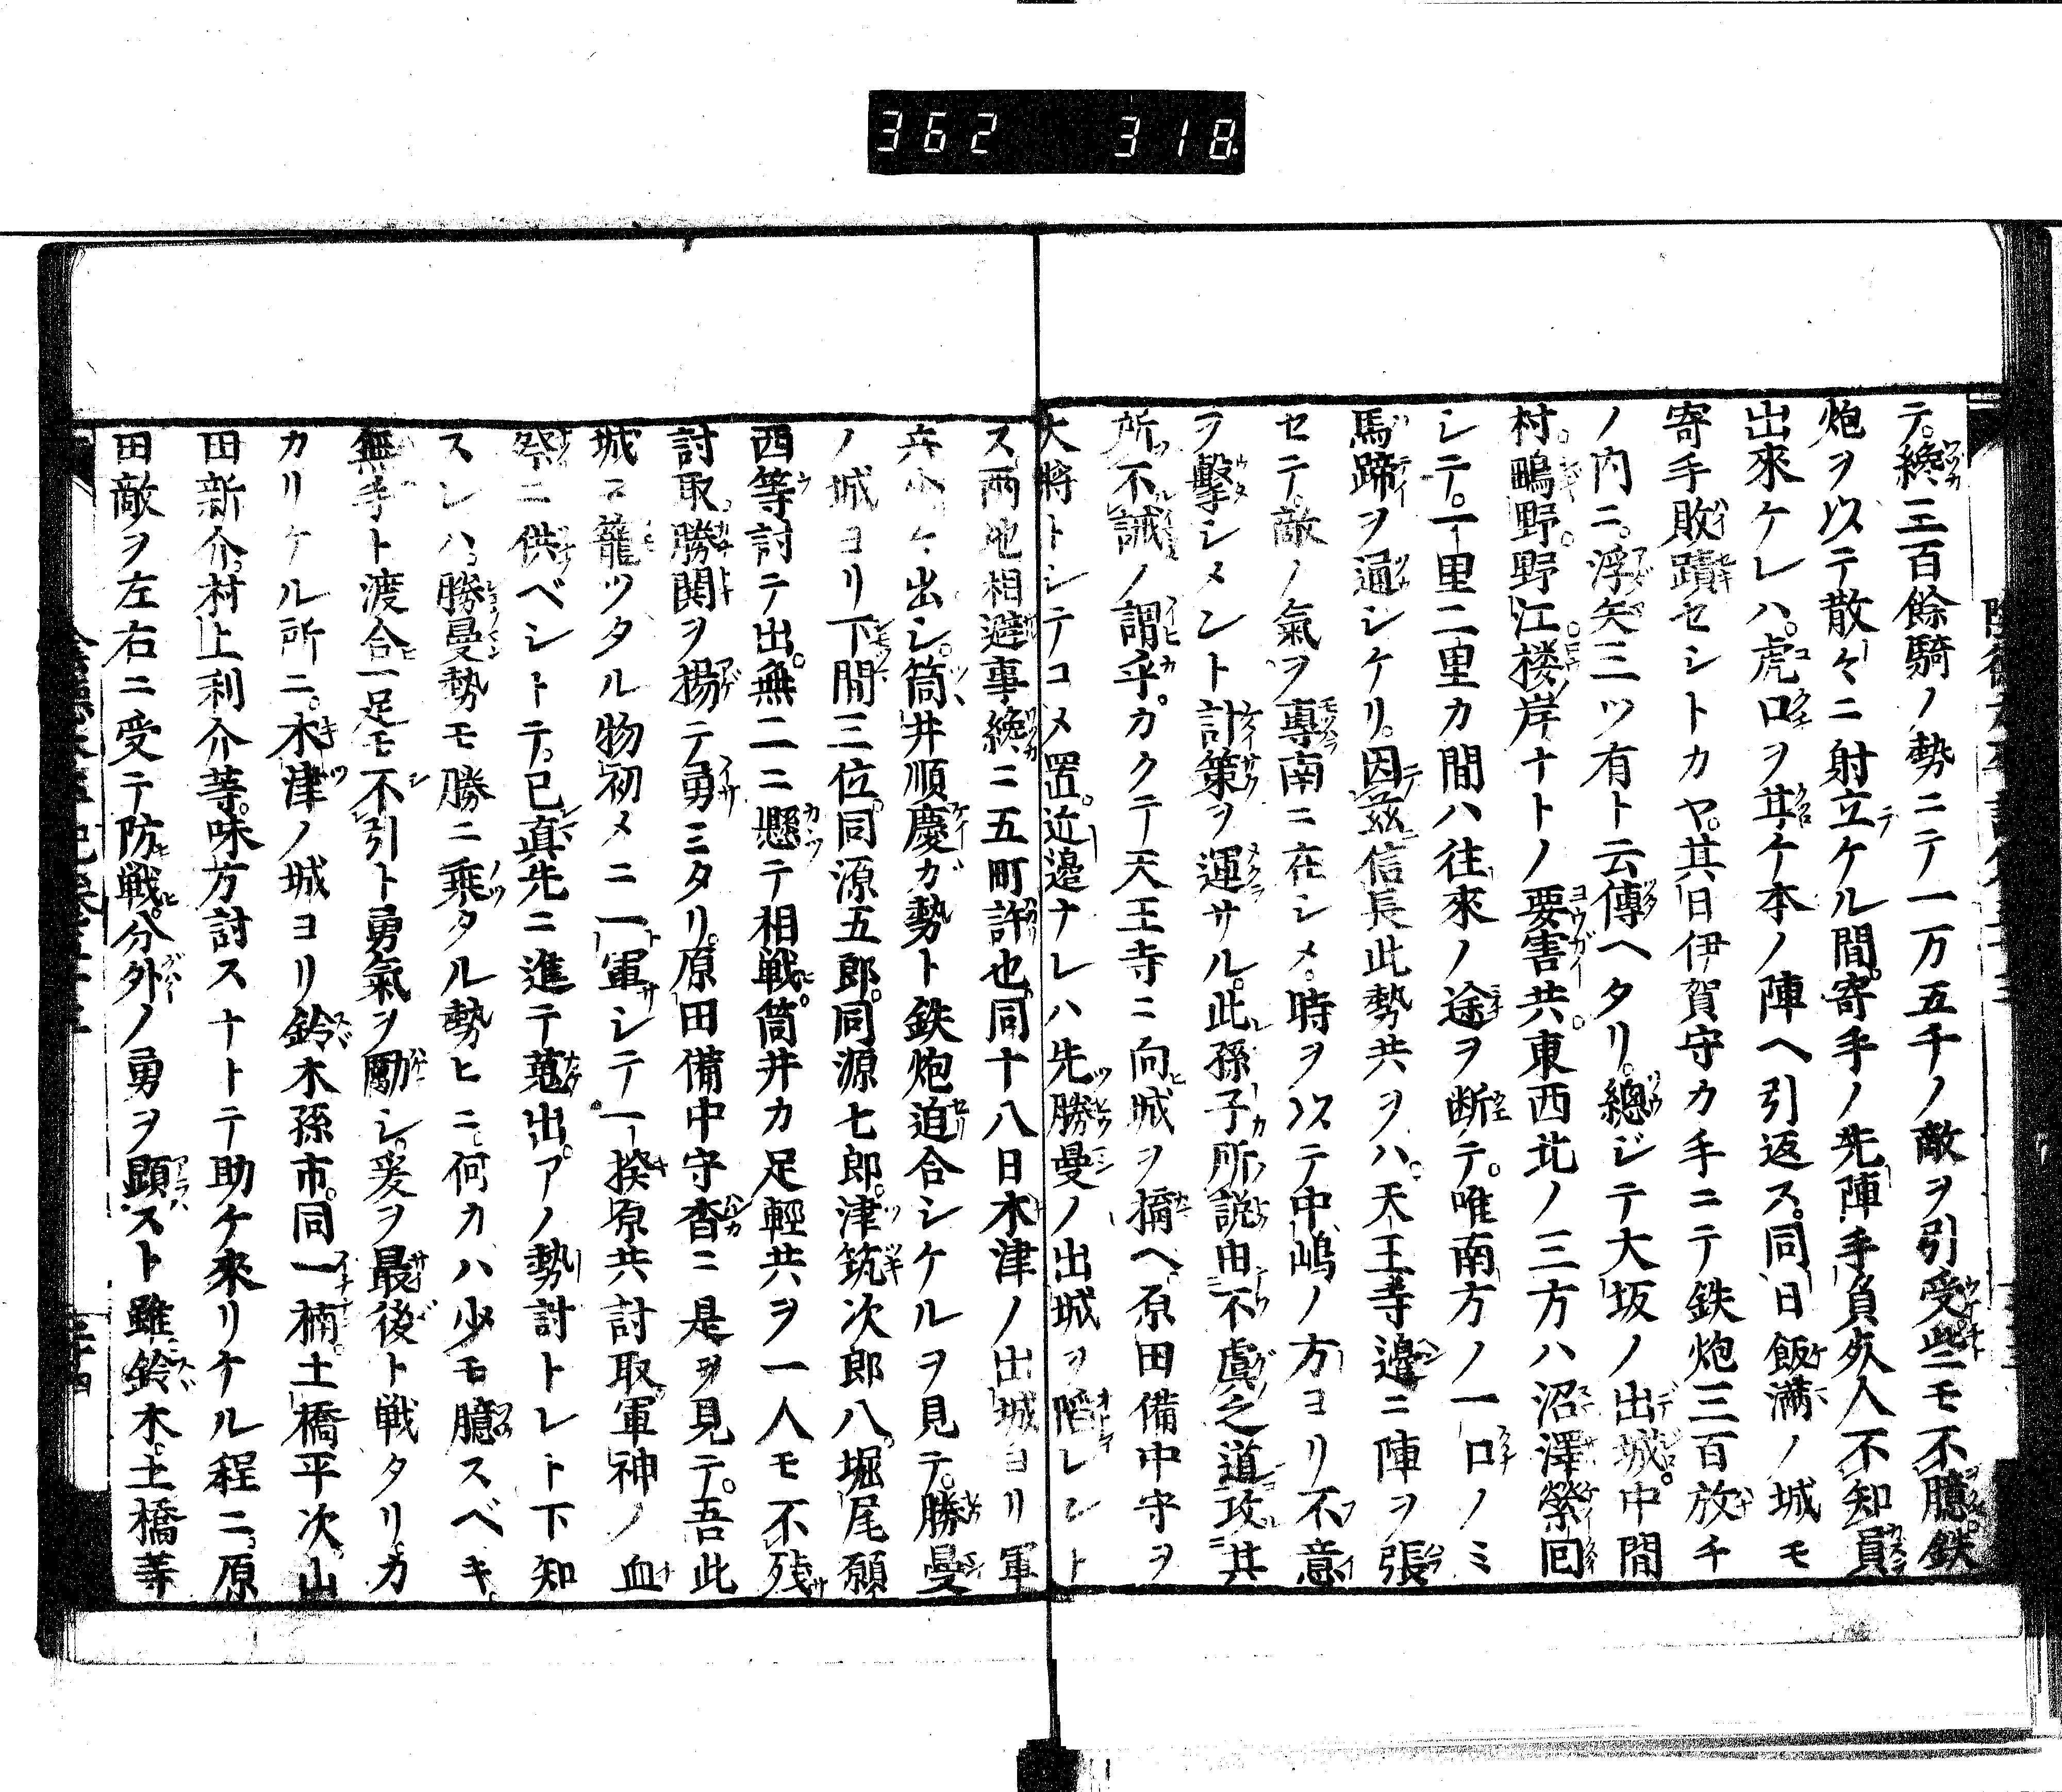 362 318
テ。纔三百餘騎ノ勢ニテ一万五千ノ敵ヲ引受。些モ不臆。鉄
炮ヲ以テ散々ニ射立ケル間。寄手ノ先陣手負死人不知員
出來ケレハ。虎口ヲ甘ケ本ノ陣ヘ引返ス。同日飯満ノ城モ
寄手敗蹟セシトカヤ。其日伊賀守カ手ニテ鉄炮三百放チ
ノ内ニ。浮矢三ツ有ト云傳ヘタリ。總ジテ大坂ノ出城。中間
村。鴫野。野江。楼岸ナトノ要害共。東西北ノ三方ハ沼澤縈回
シテ。一里二里カ間ハ往來ノ途ヲ断テ。唯南方ノ一口ノミ
馬蹄ヲ通シケリ。因茲信長此勢共ヲハ。天王寺邊ニ陣ヲ張
セテ。敵ノ氣ヲ專南ニ在シメ。時ヲ以テ中嶋ノ方ヨリ不意
ヲ擊シメント計策ヲ運サル。此孫子所説由不虞之道攻其
所不誡ノ謂乎。カクテ天王寺ニ向城ヲ搆ヘ。原田備中守ヲ
大將トシテコメ置。近邊ナレハ先勝曼ノ出城ヲ陷レント
ス。両地相避事纔ニ五町許也。同十八日木津ノ出城ヨリ軍
兵少々出シ。筒井順慶ガ勢ト鉄炮迫合シケルヲ見テ。勝曼
ノ城ヨリ下間三位。同源五郎。同源七郎。津筑次郎八。堀尾願
西等討テ出。無二ニ懸テ相戦。筒井カ足輕共ヲ一人モ不残
討取。勝閧ヲ揚テ勇ミタリ。原田備中守杳ニ是ヲ見テ。吾此
城ニ籠ツタル物初メニ一軍シテ一揆原共討取。軍神ノ血
祭ニ供ベシトテ。已真先ニ進テ蒐出。アノ勢討トレト下知
スレハ。勝曼勢モ勝ニ乗タル勢ヒニ。何カハ少モ臆スベキ
無手ト渡合一足モ不引ト勇氣ヲ勵シ。爰ヲ最後ト戦タリ。カ
カリケル所ニ。木津ノ城ヨリ鈴木孫市。同一楠。土橋平次。山
田新介。村上利介等。味方討スナトテ助ケ來リケル程ニ。原
田敵ヲ左右ニ受テ防戦。分外ノ勇ヲ顕スト雖鈴木。土橋等